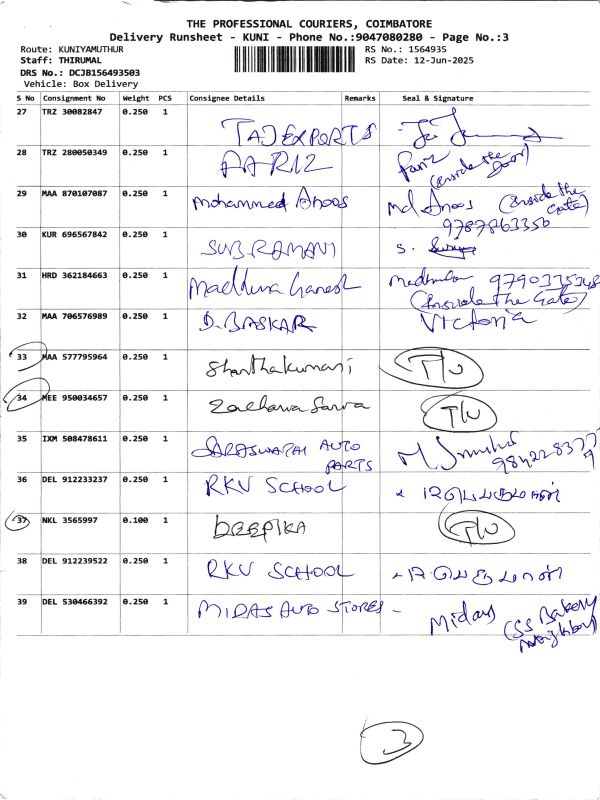 THE PROFESSIONAL COURIERS, COIMBATORE
Delivery Runsheet - KUNI - Phone No.:9047080280 - Page No.:3
Route: KUNIYAMUTHUR RS No.: 1564935
Staff: THIRUMAL RS Date: 12-Jun-2025
DRS No.: DCJB156493503
Vehicle: Box Delivery
S No Consignment No Weight PCS Consignee Details Remarks Seal & Signature
27 TRZ 30082847 0.250 1 TAJ EXPORTS
28 TRZ 280050349 0.250 1 AARIZ Fariz (Inside the Door)
29 MAA 870107087 0.250 1 Mohammed Anoos Md Anoos (Inside the Gate)
9787863350
30 KUR 696567842 0.250 1 SUBRAMANI S.
31 HRD 362184663 0.250 1 Madhura Ganesh 9790335348
(Inside The Gate)
32 MAA 706576989 0.250 1 D. BASKAR Victoria
33 MAA 577795964 0.250 1 Shanthakumari
34 MEE 950034657 0.250 1
35 IXM 508478611 0.250 1 SARASWATHI AUTO PARTS
36 DEL 912233237 0.250 1 RKV SCHOOL
37 NKL 3565997 0.100 1 DEEPIKA
38 DEL 912239522 0.250 1 RKV SCHOOL
39 DEL 530466392 0.250 1 MIDAS AUTO STORES - Midas (SS Bakery Neighbor)
3